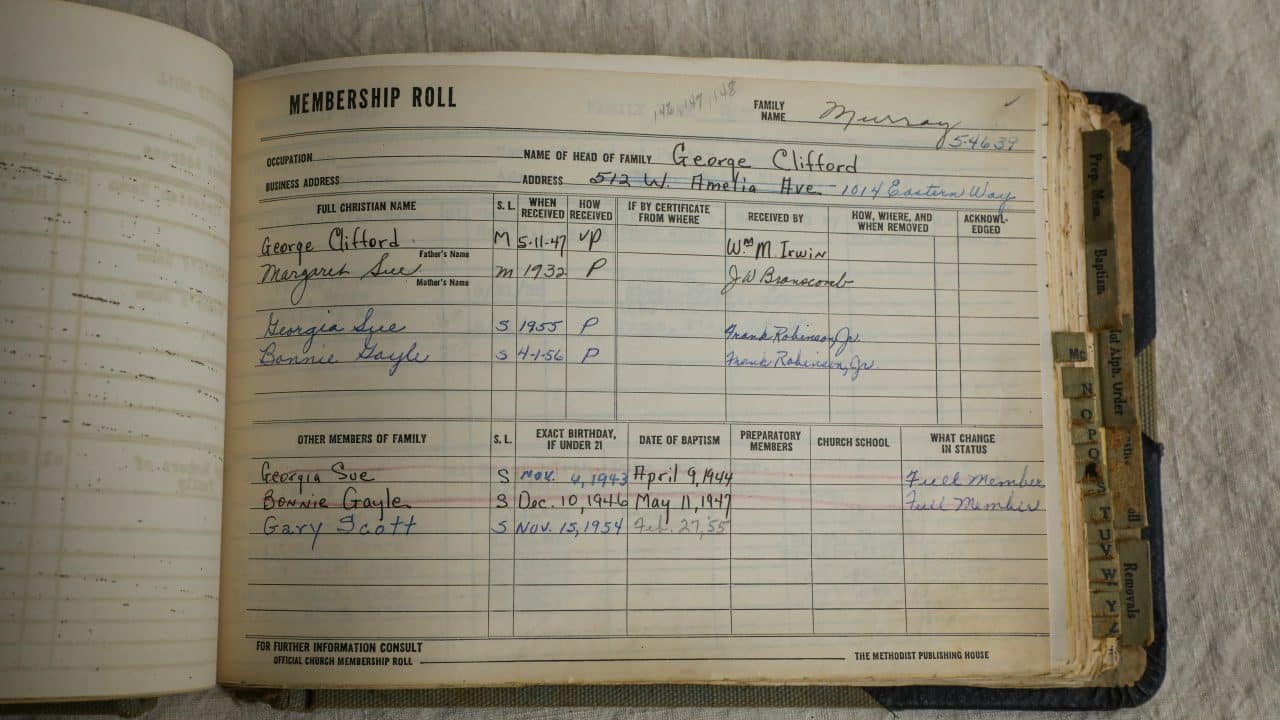 MEMBERSHIP ROLL
146, 147, 148
FAMILY NAME Murray
5-4639
OCCUPATION NAME OF HEAD OF FAMILY George Clifford
BUSINESS ADDRESS ADDRESS 512 W. Amelia Ave. - 1014 Eastern Way
FULL CHRISTIAN NAME S. L. WHEN RECEIVED HOW RECEIVED IF BY CERTIFICATE FROM WHERE RECEIVED BY HOW, WHERE, AND WHEN REMOVED ACKNOWL-EDGED
George Clifford M 5-11-47 VP Wm. M. Irwin
Father's Name
Margaret Sue m 1932 P J W Branscomb
Mother's Name
Georgia Sue S 1955 P Frank Robinson, Jr.
Bonnie Gayle S 4-1-56 P Frank Robinson, Jr.
OTHER MEMBERS OF FAMILY S. L. EXACT BIRTHDAY, IF UNDER 21 DATE OF BAPTISM PREPARATORY MEMBERS CHURCH SCHOOL WHAT CHANGE IN STATUS
Georgia Sue S Nov. 4, 1943 April 9, 1944 Full Member
Bonnie Gayle S Dec. 10, 1946 May 11, 1947 Full Member
Gary Scott S Nov. 15, 1954 Feb. 27, '55
FOR FURTHER INFORMATION CONSULT
OFFICIAL CHURCH MEMBERSHIP ROLL THE METHODIST PUBLISHING HOUSE
Prep. Mem.
Baptism
Alph. Order
Removals
Mc
N
O
P
S
T
U V
W
Y
Z